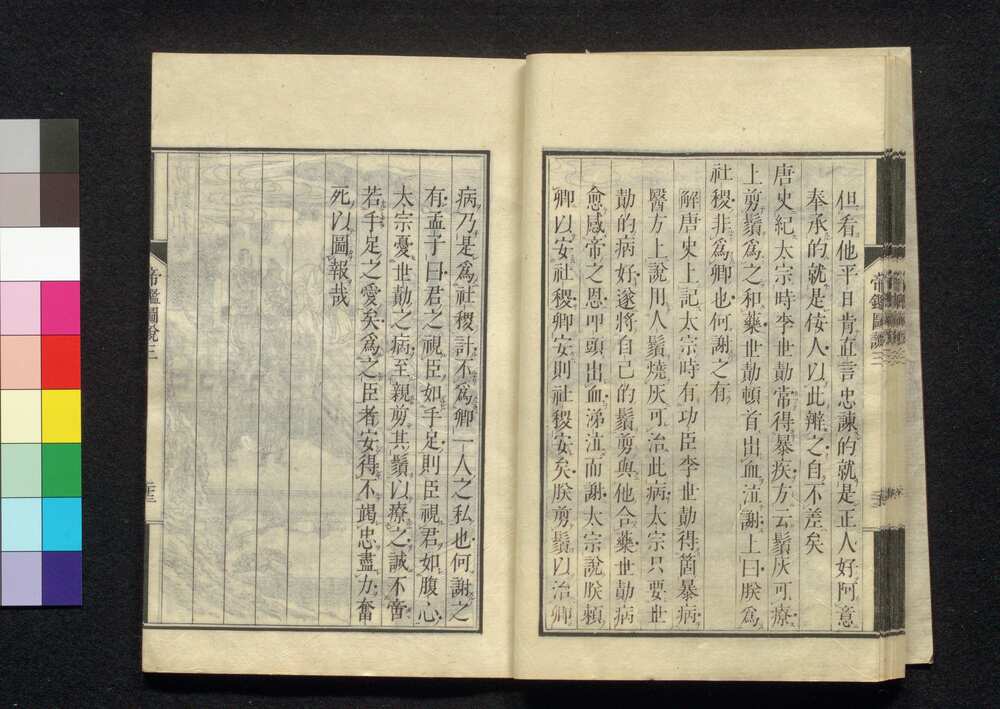 但看他平日肯直言忠諫的就是正人好阿意
奉承的就是侫人以此辨之自不差矣
唐史紀太宗時李世勣常得暴疾方云鬚灰可療
上剪鬚爲之和藥世勣頓首出血泣謝上曰朕爲
社稷非爲卿也何謝之有
解唐史上記太宗時有功臣李世勣得箇暴病
醫方上說用人鬚燒灰可治此病太宗只要世
勣的病好遂將自己的鬚剪與他合藥世勣病
愈感帝之恩叩頭出血涕泣而謝太宗說朕賴
卿以安社稷卿安則社稷安矣朕剪鬚以治卿
病乃是爲社稷計不爲卿一人之私也何謝之
有孟子曰君之視臣如手足則臣視君如腹心
太宗憂世勣之病至親剪其鬚以療之誠不啻
若手足之愛矣爲之臣者安得不竭忠盡力奮
死以圖報哉
帝鑑圖說三